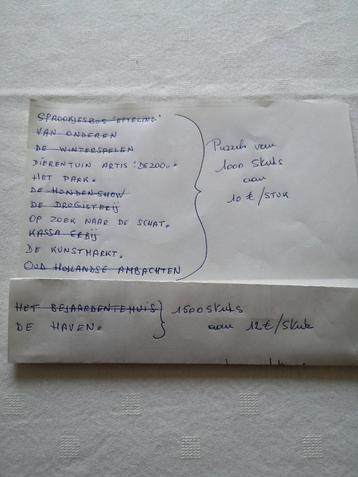 SPROOKJESBOS 'EFTELING'
VAN ONDEREN
DE WINTERSPELEN
DIERENTUIN ARTIS 'DE ZOO'.
HET PARK.
DE HONDENSHOW
DE DROGISTERIJ
OP ZOEK NAAR DE SCHAT.
KASSA ERBIJ
DE KUNSTMARKT.
OUD HOLLANDSE AMBACHTEN
Puzzels van
1000 stuks
aan
10 € / STUK
HET BEJAARDENTEHUIS
DE HAVEN.
1500 stuks
aan 12 € / stuk